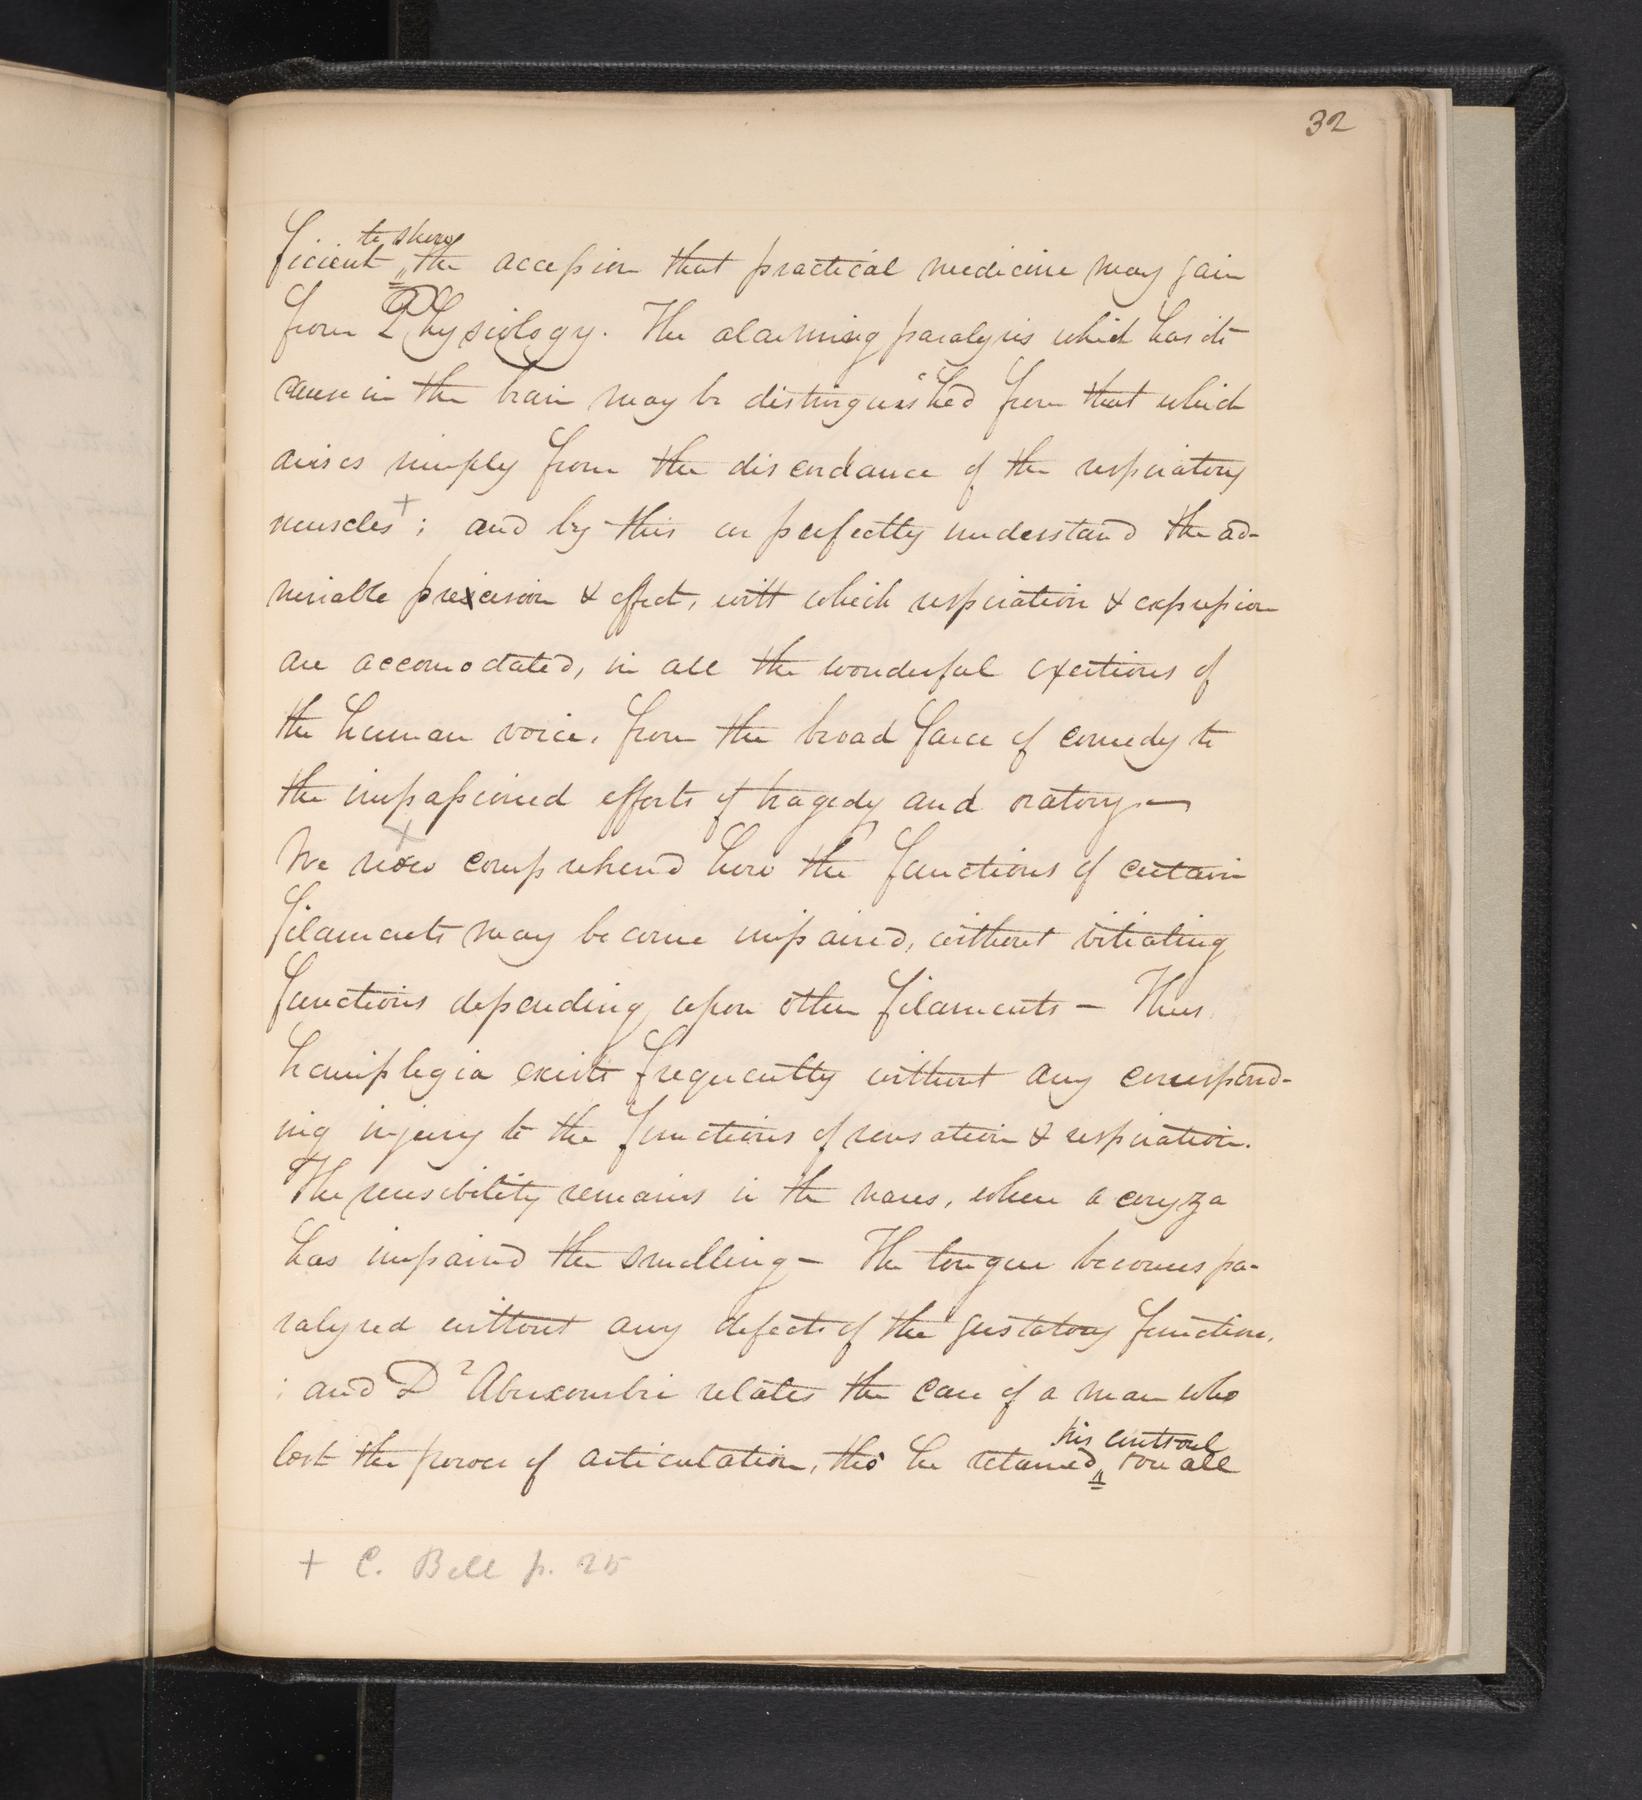 32
to show
ficient the accession that practical medicine may gain
from Physiology. The alarming paralysis which has its
cause in the brain may be distinguished from that which
arises simply from the discordance of the respiratory
muscles + ; and by this we perfectly understand the ad-
mirable precision & effect, with which respiration & expression
are accomodated, in all the wonderful exertions of
the human voice, from the broad farce of comedy to
the impassioned efforts of tragedy and oratory —
We now comprehend how the functions of certain
filaments may become impaired, without vitiating
functions depending upon other filaments — Thus
hemiplegia exists frequently without any correspond-
ing injury to the functions of sensation & respiration.
The sensibility remains in the nares, when a coryza
has impaired the smelling — The tongue becomes pa-
ralysed without any defects of the gustatory function,
; and Dr Abercombie relates the case of a man who
his controul
lost the power of articulation, tho' he retained over all
+ C. Bell p. 25